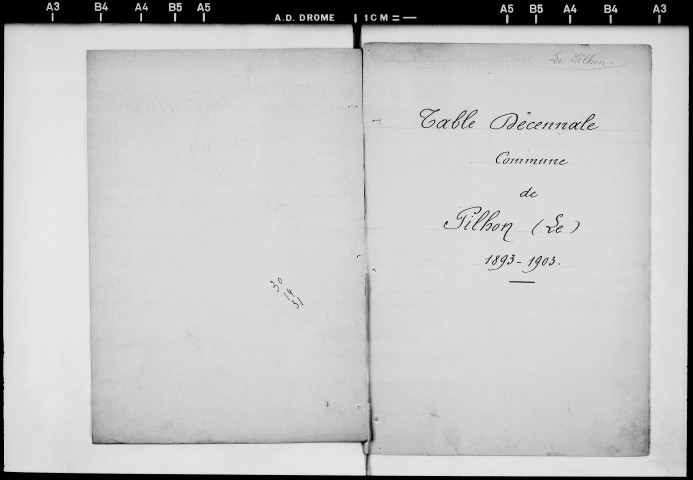 A3 B4 A4 B5 A5 A.D. DROME 1 CM = A5 B5 A4 B4 A3
30
14
31
Le Pilhon.
Table Décennale
Commune
de
Pilhon (Le)
1893-1903.